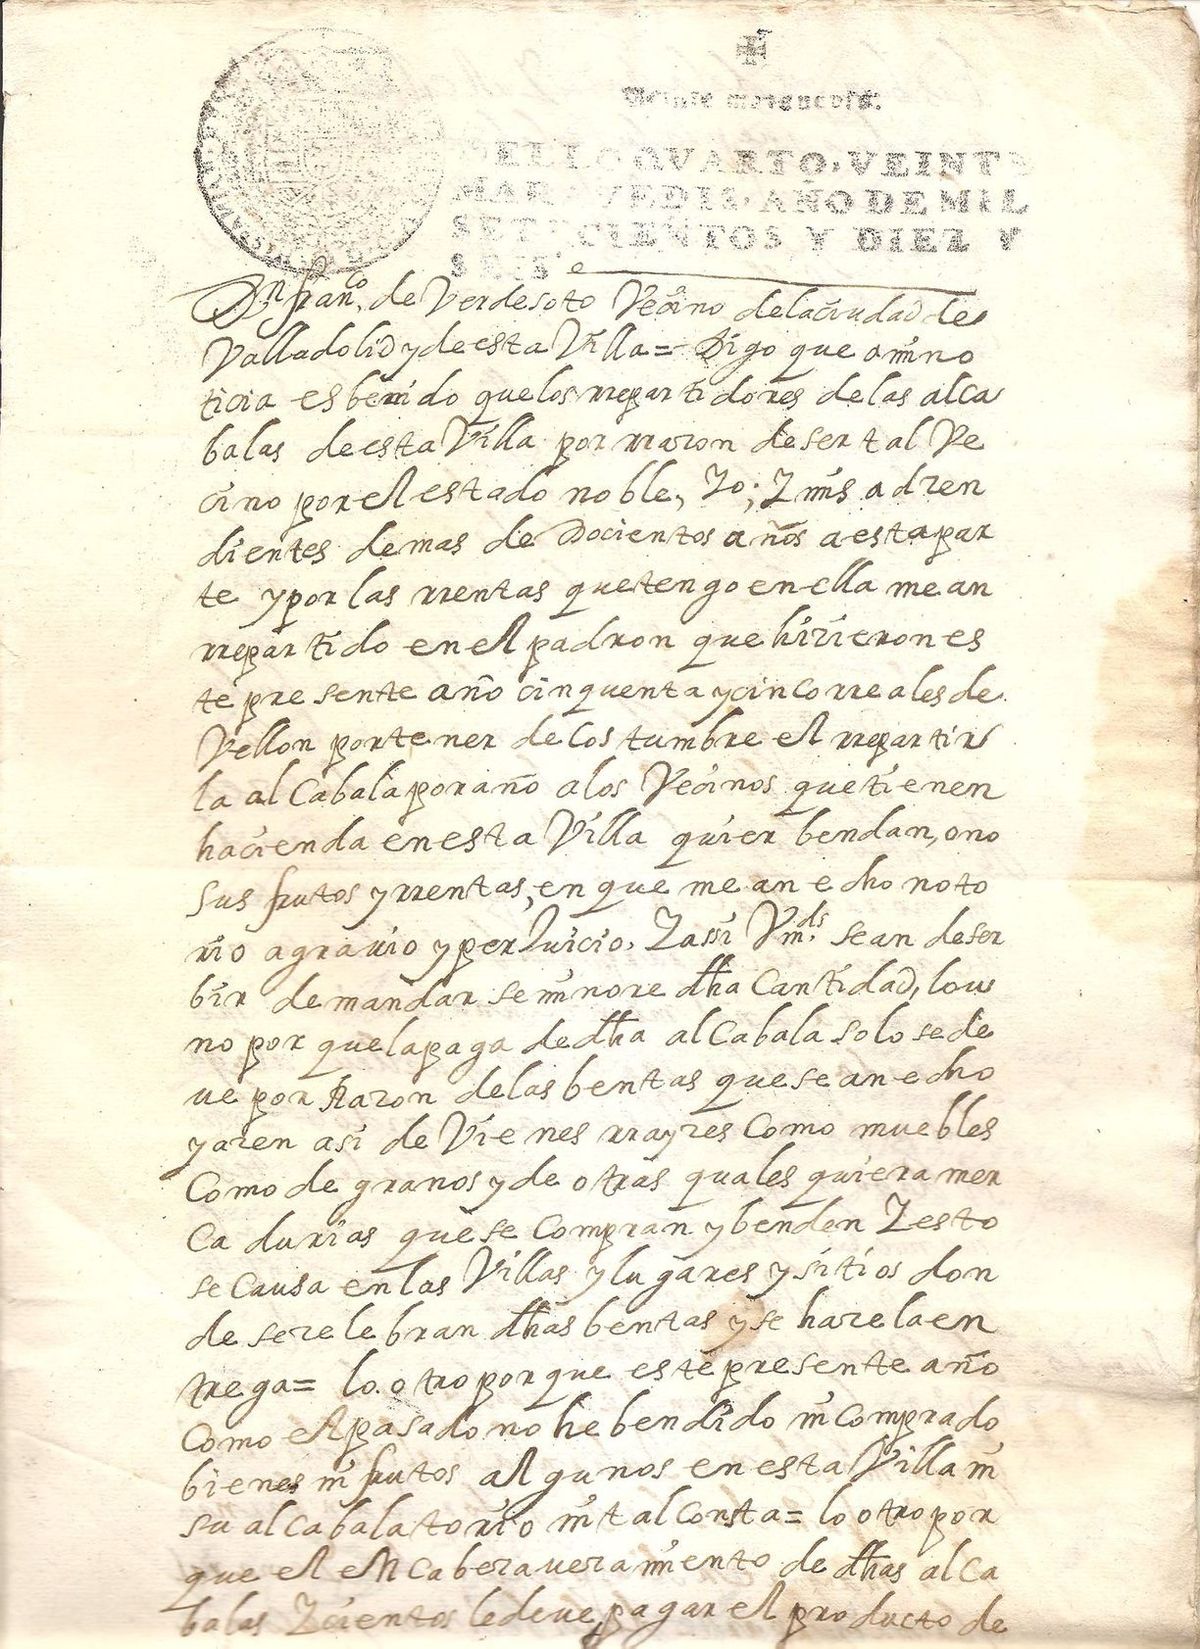 Veinte maravedis.
SELLO QVARTO, VEINTE
MARAVEDIS, AÑO DE MIL
SETECIENTOS Y DIEZ Y
SEIS
Dn franco. de Verdesoto Vecino dela ciudad de
Valladolid y de esta Villa = Digo que a mi no
ticia es benido que los rrepartidores de las alca
balas de esta Villa por rrazon de ser tal Ve
cino por el estado noble, Yo; Y mis adzen
dientes de mas de Docientos años a esta par
te y por las rrentas que tengo en ella me an
rrepartido en el padron que hizieron es
te presente año cinquenta y cinco rreales de
Vellon por tener de costumbre el rrepartir
la alCabala por año a los Vecinos que tienen
hacienda en esta Villa quier bendan, o no
sus frutos y rrentas, en que me an echo noto
rio agravio y perJuicio, Y assi Vmds. se an de ser
bir de mandar se minore dha Cantidad, lo u
no por que la paga de dha alCabala solo se de
ve por Razon de las bentas que se an echo
y azen asi de Vienes rrayzes Como muebles
Como de granos y de otras quales quiera mer
Cadurias que se Compran y benden Y esto
se Causa en las Villas y lugares y sitios don
de se zelebran dhas bentas y se haze la en
trega = lo otro por que este presente año
Como el pasado no he bendido ni Comprado
bienes ni frutos algunos en esta Villa ni
su alCabalatorio ni tal Consta = lo otro por
que el enCabezaveramiento de dhas alCa
balas Y cientos le deve pagar el producto de